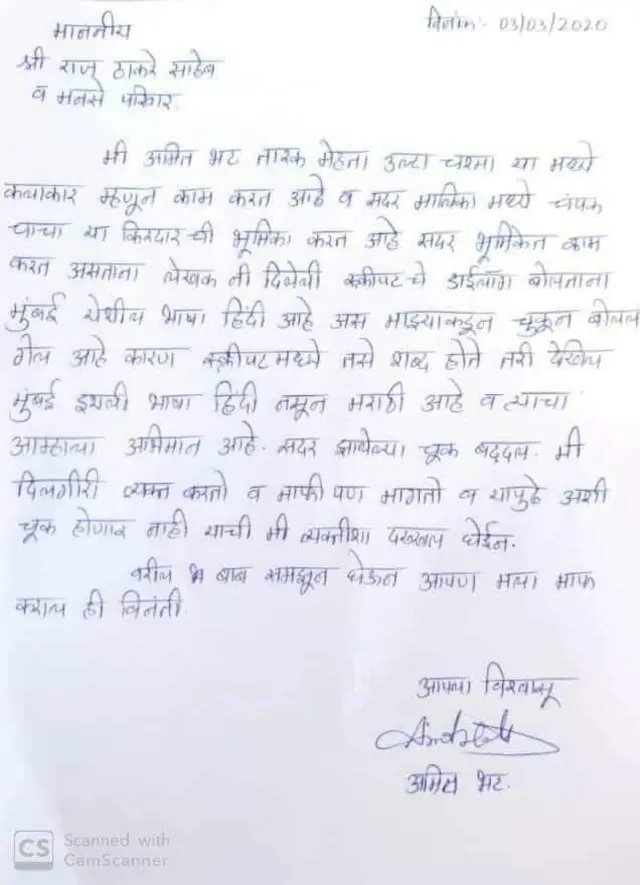 माननीय
दिनांक- 03/03/2020
श्री राज ठाकरे साहेब
व मनसे परिवार.
मी अमित भट तारक मेहता उल्टा चश्मा या मध्ये
कलाकार म्हणून काम करत आहे व सदर मालिका मध्ये चंपक
चाचा या किरदार ची भूमिका करत आहे सदर भूमिकेत काम
करत असताना लेखक नी दिलेली स्क्रीपट चे डाईलॉग बोलताना
मुंबई येथील भाषा हिंदी आहे अस माझ्याकडून चुकून बोलल
गेल आहे कारण स्क्रीपटमध्ये तसे शब्द होते तरी देखील
मुंबई इथली भाषा हिंदी नसून मराठी आहे व त्याचा
आम्हाला अभिमान आहे. सदर झालेल्या चूक बद्दल. मी
दिलगीरी व्यक्त करतो व माफी पण मागतो व यापुढे अशी
चूक होणार नाही याची मी व्यक्तीशा दखल घेईन.
वरील बाब समजून घेऊन आपण मला माफ
कराल ही विनंती.
आपला विश्वासू
अमित भट.
CS Scanned with
CamScanner